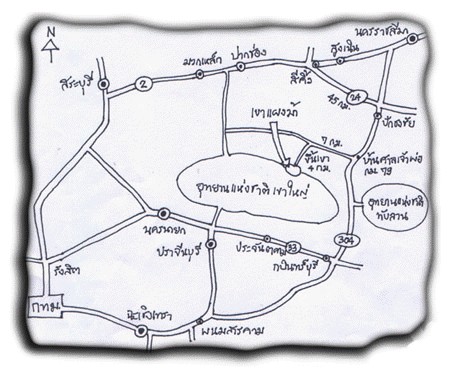 N
นครราชสีมา
สูงเนิน
ปากช่อง
มวกเหล็ก
สีคิ้ว
สระบุรี
2
24
45 กม.
ปักธงชัย
เขาแผงม้า
7 กม.
ขึ้นเขา
4 กม.
บ้านศาลเจ้าพ่อ
กม. 79
อุทยานแห่งชาติ เขาใหญ่
อุทยานแห่งชาติ
ทับลาน
นครนายก
ปราจีนบุรี
ประจันตคาม
33
304
กบินทร์บุรี
รังสิต
กทม.
ฉะเชิงเทรา
พนมสารคาม